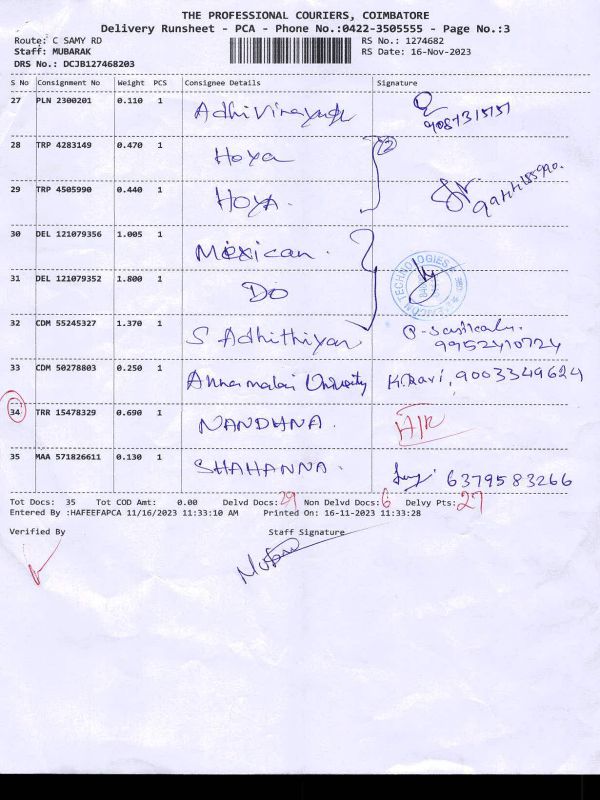 THE PROFESSIONAL COURIERS, COIMBATORE
Delivery Runsheet - PCA - Phone No.:0422-3505555 - Page No.:3
Route: C SAMY RD RS No.: 1274682
Staff: MUBARAK RS Date: 16-Nov-2023
DRS No.: DCJB127468203
S No Consignment No Weight PCS Consignee Details Signature
27 PLN 2300201 0.110 1
28 TRP 4283149 0.470 1 Hoya
29 TRP 4505990 0.440 1 HOYA.
30 DEL 121079356 1.005 1 Mexican.
TECHNOLOGIES
31 DEL 121079352 1.800 1 DO
32 CDM 55245327 1.370 1 S Adhithiyan
9952410724
33 CDM 50278803 0.250 1 Annamalai University K.Ravi, 9003349624
34 TRR 15478329 0.690 1 NANDHNA.
35 MAA 571826611 0.130 1 SHAHANNA. 6379583266
Tot Docs: 35 Tot COD Amt: 0.00 Delvd Docs: 29 Non Delvd Docs: 6 Delvy Pts: 27
Entered By :HAFEEFAPCA 11/16/2023 11:33:10 AM Printed On: 16-11-2023 11:33:28
Verified By Staff Signature